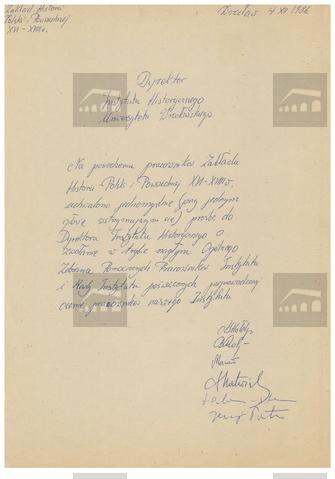 Zakład Historii
Polski i Powszechnej
XVI-XVIII w.
Wrocław 4 XII 1986
Dyrektor
Instytutu Historycznego
Uniwersytetu Wrocławskiego
Na posiedzeniu pracowników Zakładu
Historii Polski i Powszechnej XVI-XVIII w.
uchwalono jednomyślnie (przy jednym
głosie wstrzymującym się) prośbę do
Dyrektora Instytutu Historycznego o
zwołanie w trybie nagłym Ogólnego
Zebrania Pomocniczych Pracowników Instytutu
i Rady Instytutu poświęconych
ocenie pracowników naszego Instytutu